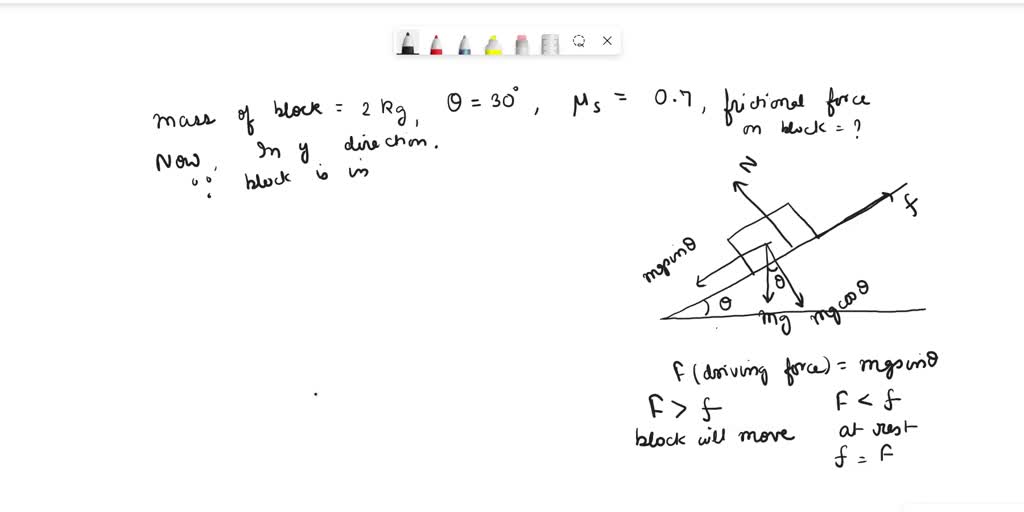 mass of block = 2 kg, θ = 30°, μs = 0.7, frictional force
on block = ?
Now, In y direction.
∵ block is in
N
f
mgsinθ
θ
θ
mg
mgcosθ
F (driving force) = mgsinθ
F > f
F < f
block will move
at rest
f = F